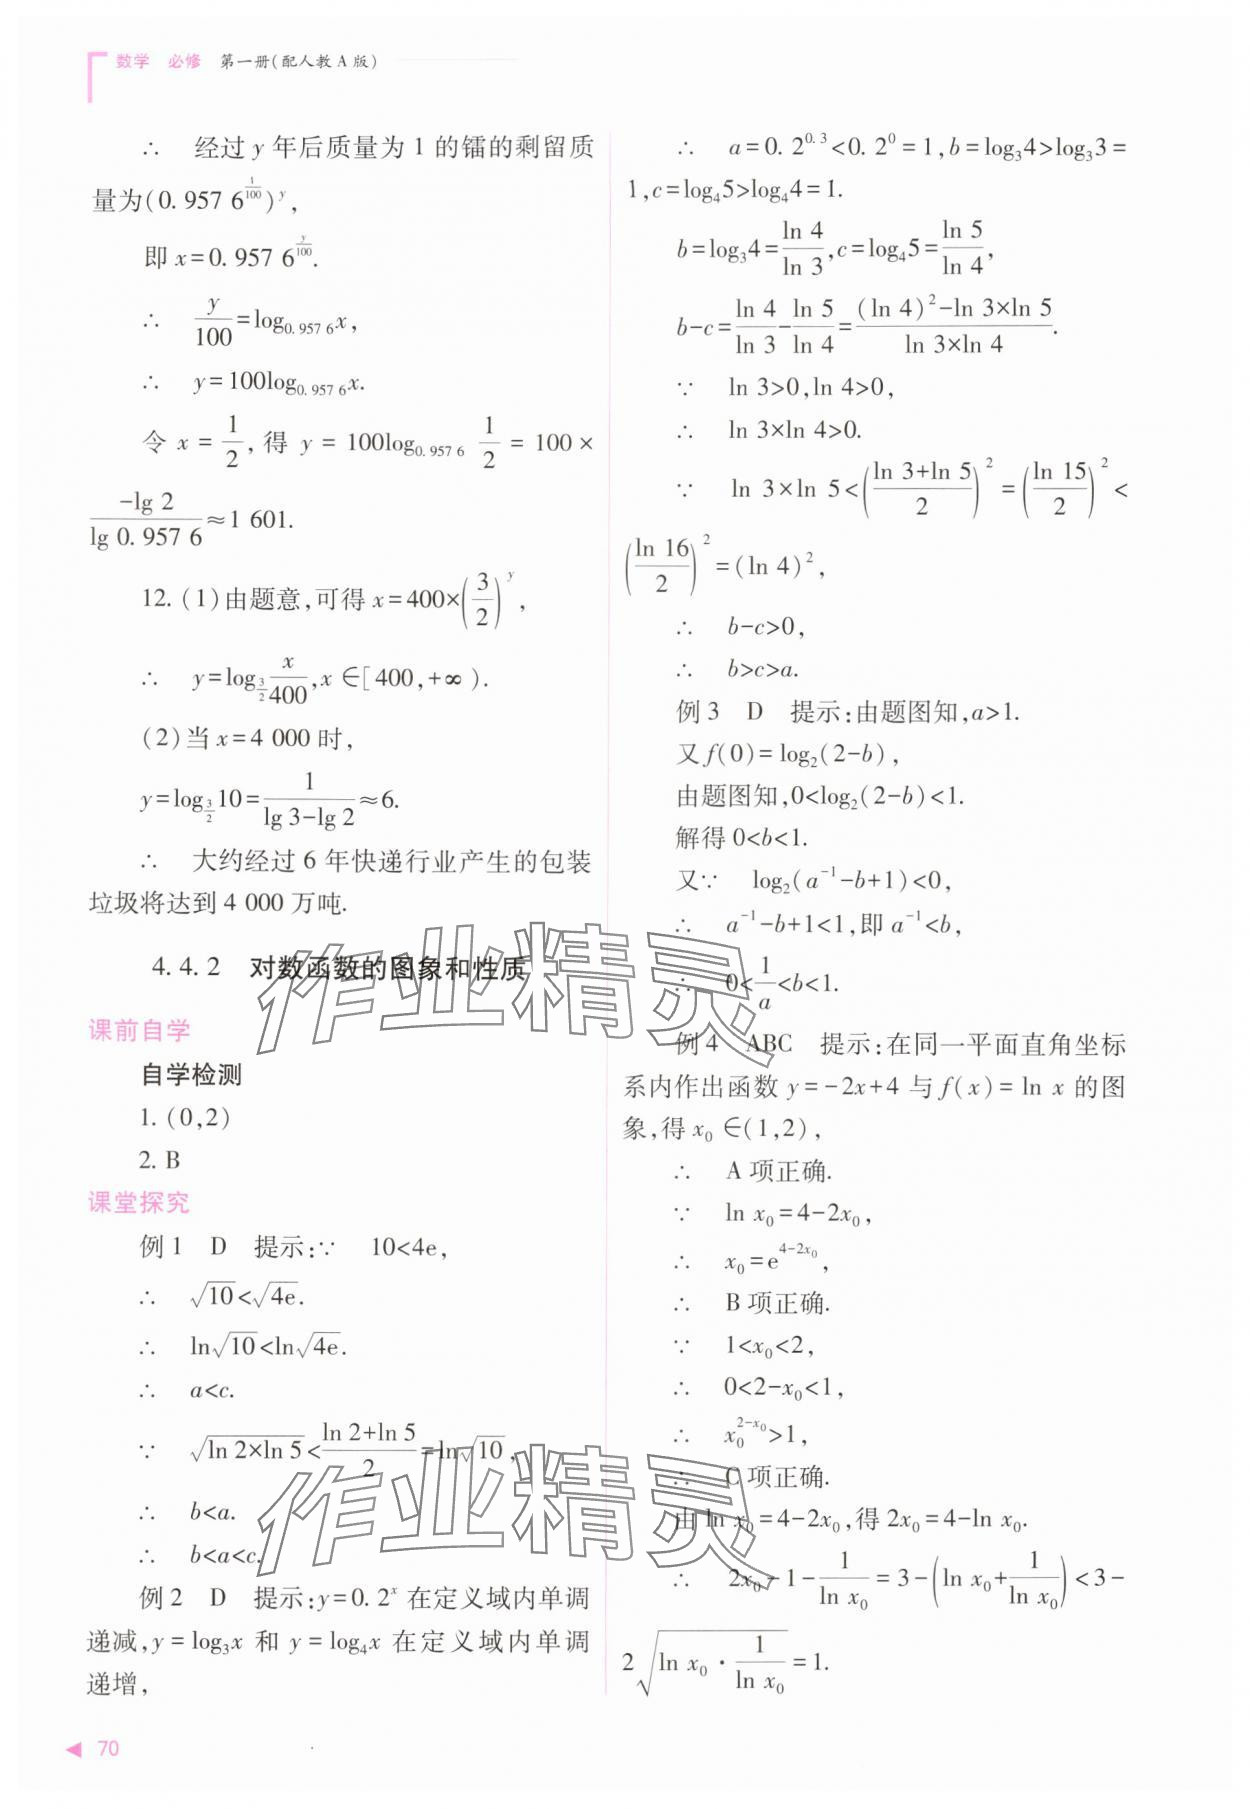 数学　必修　第一册(配人教A版)
∴　经过 y 年后质量为 1 的镭的剩留质
量为(0.957 6^{\frac{1}{100}})^y,
即 x=0.957 6^{\frac{y}{100}}.
∴　\frac{y}{100}=log_{0.957 6}x,
∴　y=100log_{0.957 6}x.
令 x=\frac{1}{2},得 y=100log_{0.957 6}\frac{1}{2}=100×
\frac{-lg 2}{lg 0.957 6}≈1 601.
12.(1)由题意,可得 x=400×(\frac{3}{2})^y,
∴　y=log_{\frac{3}{2}}\frac{x}{400},x∈[400,+∞).
(2)当 x=4 000 时,
y=log_{\frac{3}{2}}10=\frac{1}{lg 3-lg 2}≈6.
∴　大约经过 6 年快递行业产生的包装
垃圾将达到 4 000 万吨.
4.4.2　对数函数的图象和性质
课前自学
自学检测
1.(0,2)
2.B
课堂探究
例1　D　提示:∵　10<4e,
∴　\sqrt{10}<\sqrt{4e}.
∴　ln\sqrt{10}<ln\sqrt{4e}.
∴　a<c.
∵　\sqrt{ln 2×ln 5}<\frac{ln 2+ln 5}{2}=ln\sqrt{10},
∴　b<a.
∴　b<a<c.
例2　D　提示:y=0.2^x 在定义域内单调
递减,y=log_3x 和 y=log_4x 在定义域内单调
递增,
∴　a=0.2^{0.3}<0.2^0=1,b=log_34>log_33=
1,c=log_45>log_44=1.
b=log_34=\frac{ln 4}{ln 3},c=log_45=\frac{ln 5}{ln 4},
b-c=\frac{ln 4}{ln 3}-\frac{ln 5}{ln 4}=\frac{(ln 4)^2-ln 3×ln 5}{ln 3×ln 4}.
∵　ln 3>0,ln 4>0,
∴　ln 3×ln 4>0.
∵　ln 3×ln 5<(\frac{ln 3+ln 5}{2})^2=(\frac{ln 15}{2})^2<
(\frac{ln 16}{2})^2=(ln 4)^2,
∴　b-c>0,
∴　b>c>a.
例3　D　提示:由题图知,a>1.
又 f(0)=log_2(2-b),
由题图知,0<log_2(2-b)<1.
解得 0<b<1.
又∵　log_2(a^{-1}-b+1)<0,
∴　a^{-1}-b+1<1,即 a^{-1}<b,
∴　0<\frac{1}{a}<b<1.
例4　ABC　提示:在同一平面直角坐标
系内作出函数 y=-2x+4 与 f(x)=ln x 的图
象,得 x_0∈(1,2),
∴　A 项正确.
∵　ln x_0=4-2x_0,
∴　x_0=e^{4-2x_0},
∴　B 项正确.
∵　1<x_0<2,
∴　0<2-x_0<1,
∴　x_0^{2-x_0}>1,
∴　C 项正确.
由 ln x_0=4-2x_0,得 2x_0=4-ln x_0.
∴　2x_0-1-\frac{1}{ln x_0}=3-(ln x_0+\frac{1}{ln x_0})<3-
2\sqrt{ln x_0·\frac{1}{ln x_0}}=1.
作业精灵
作业精灵
◀ 70